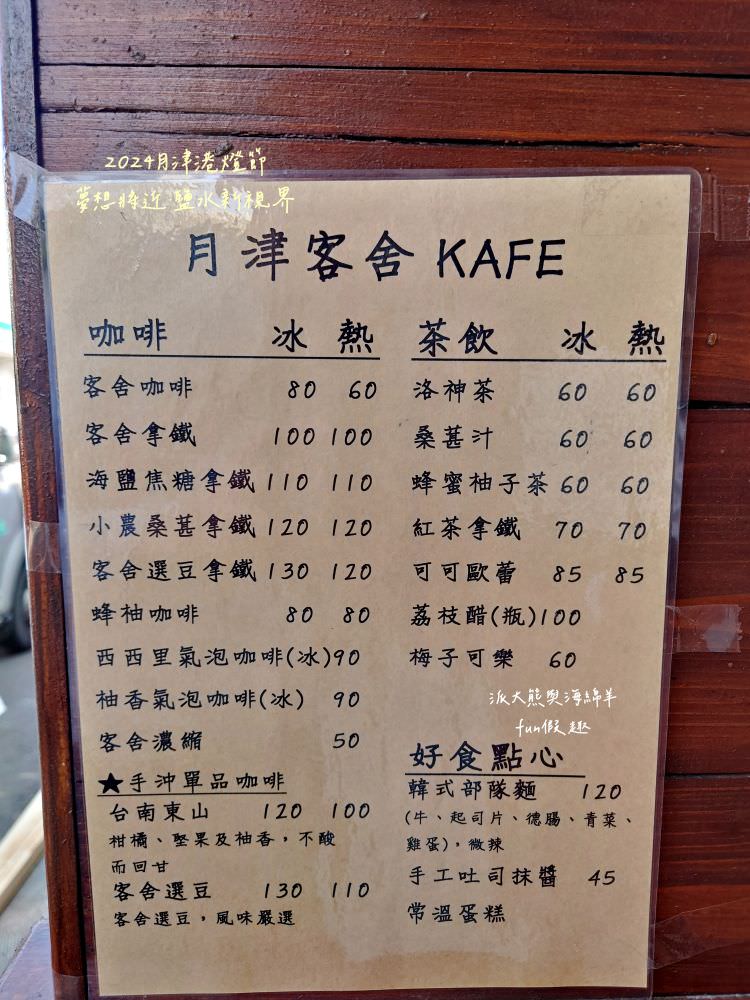 2024月津港燈節
夢想將近 鹽水新視界
月津客舍 KAFE
咖啡 冰 熱
客舍咖啡 80 60
客舍拿鐵 100 100
海鹽焦糖拿鐵 110 110
小農桑葚拿鐵 120 120
客舍選豆拿鐵 130 120
蜂柚咖啡 80 80
西西里氣泡咖啡(冰) 90
柚香氣泡咖啡(冰) 90
客舍濃縮 50
★手沖單品咖啡
台南東山 120 100
柑橘、堅果及柚香，不酸
而回甘
客舍選豆 130 110
客舍選豆，風味嚴選
茶飲 冰 熱
洛神茶 60 60
桑葚汁 60 60
蜂蜜柚子茶 60 60
紅茶拿鐵 70 70
可可歐蕾 85 85
荔枝醋(瓶) 100
梅子可樂 60
派大熊與海綿羊
fun假趣
好食點心
韓式部隊麵 120
(牛、起司片、德腸、青菜、
雞蛋)，微辣
手工吐司抹醬 45
常溫蛋糕